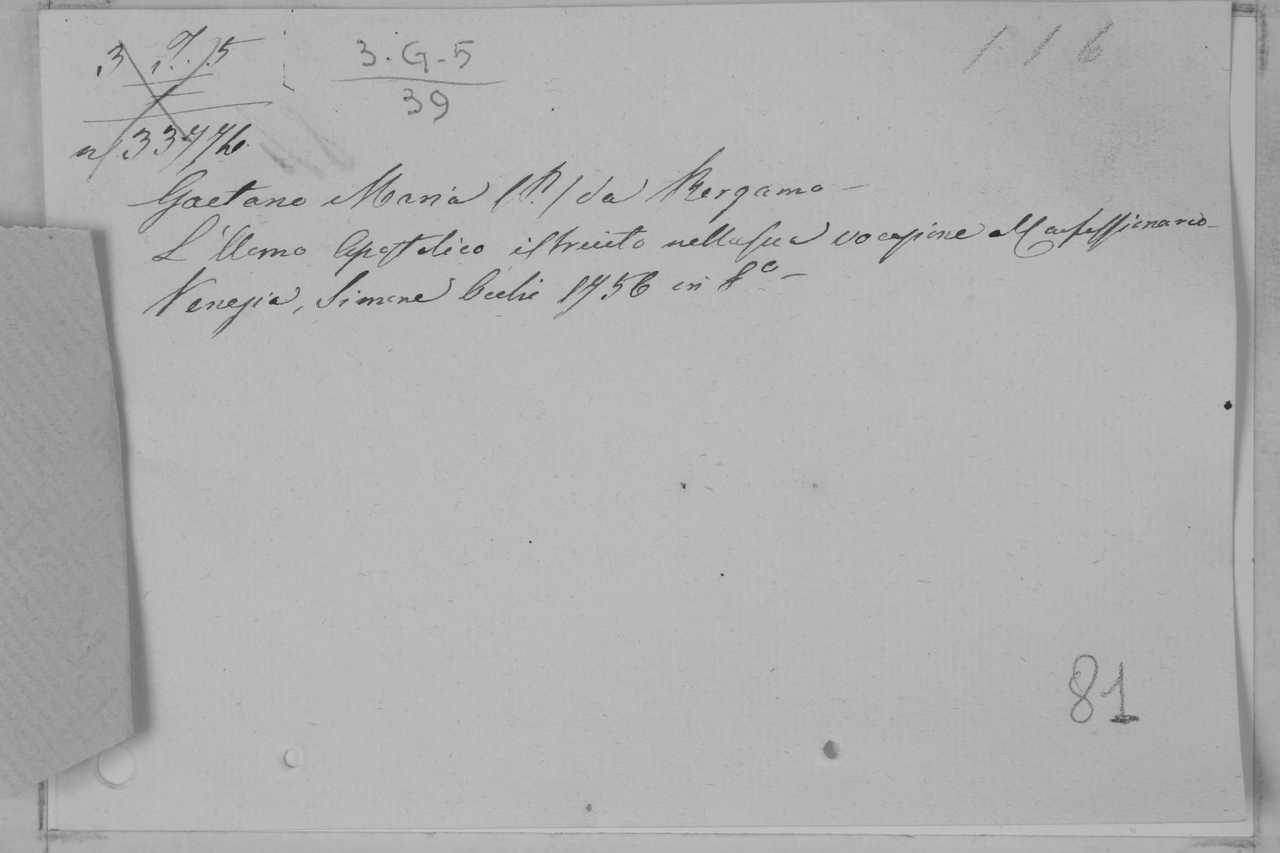 3 . 5
3.G-5
39
116
Gaetano Maria (P.) da Bergamo -
L'Uomo Apostolico istruito nella sua vocazione al Confessionario -
Venezia, Simone Occhi 1756 in 8º -
81